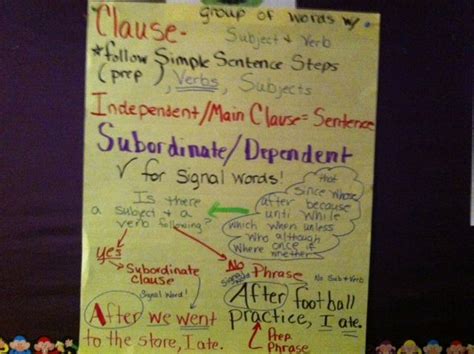 Clause- group of words w/
Subject + Verb
*follow Simple Sentence Steps
(prep), Verbs, Subjects
Independent/Main Clause = Sentence
Subordinate/Dependent
✓ for Signal Words!
that
since whose
after because
until while
which when unless
who although
where once if
whether
Is there
a subject + a
verb following?
Yes
Subordinate
clause
Signal Word!
After we went
to the store, I ate.
No
Phrase
No Sub + Verb
After football
practice, I ate.
Prep
Phrase